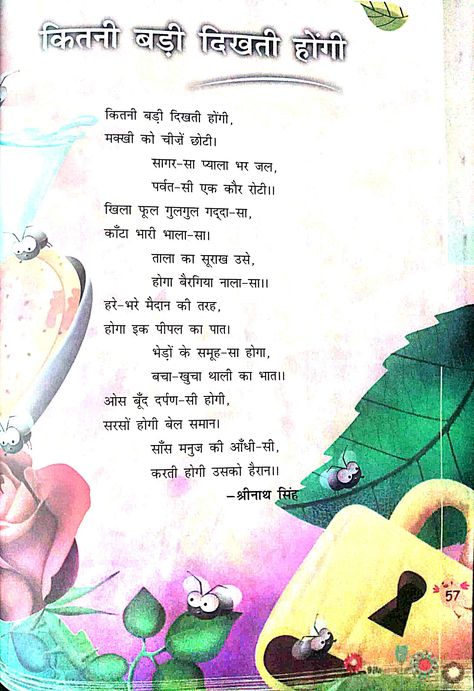 कितनी बड़ी दिखती होंगी
कितनी बड़ी दिखती होंगी,
मक्खी को चीज़ें छोटी।
सागर-सा प्याला भर जल,
पर्वत-सी एक कौर रोटी।।
खिला फूल गुलगुल गद्दा-सा,
काँटा भारी भाला-सा।
ताला का सूराख उसे,
होगा बैरगिया नाला-सा।।
हरे-भरे मैदान की तरह,
होगा इक पीपल का पात।
भेड़ों के समूह-सा होगा,
बचा-खुचा थाली का भात।।
ओस बूँद दर्पण-सी होगी,
सरसों होगी बेल समान।
साँस मनुज की आँधी-सी,
करती होगी उसको हैरान।।
–श्रीनाथ सिंह
57